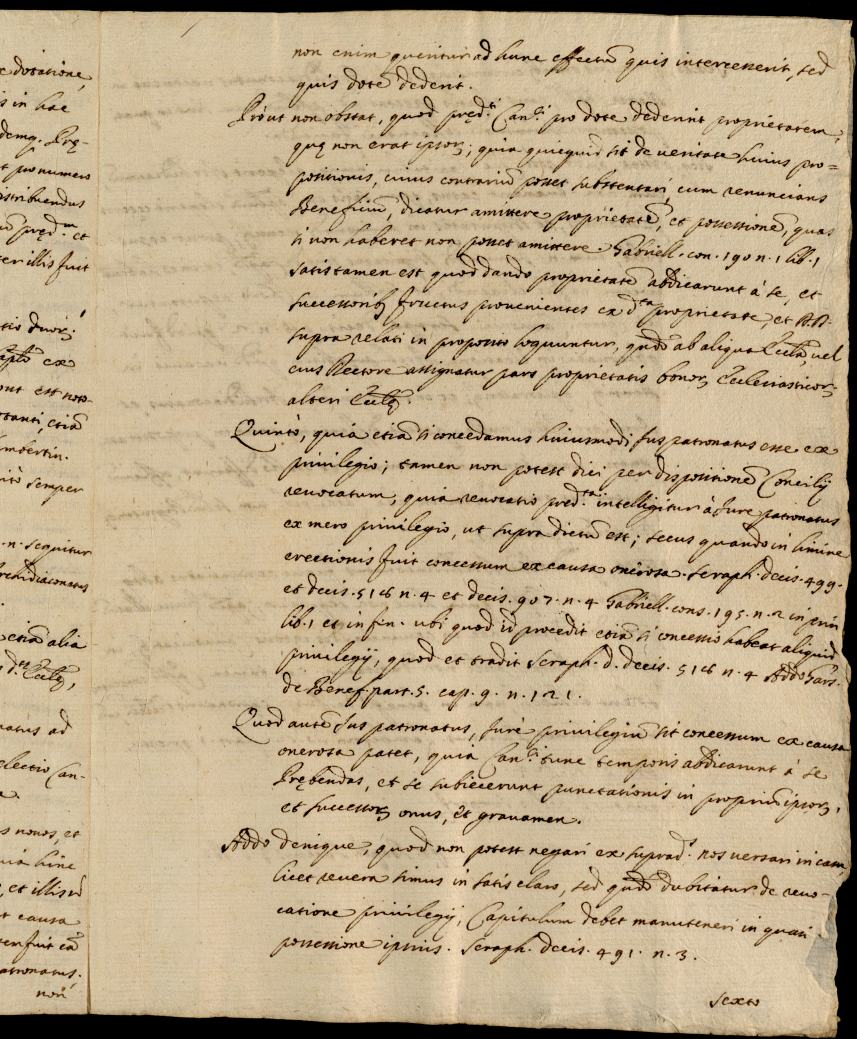 e dotatione
s in hac
demq. Prę-
t pro numero
istribuendus
pręd.m et
er illis fuit
tio duor.
ex
out est noto-
stanti, etiã
mbertin.
semper
. n. sequitur
rchidiaconatus
etiã alia
d.ae Eccłę,
natus ad
electio Can-
s novos, et
uia hinc
, et illis
t causa
ter fuit eã
atronatus.
non
non enim queritur ad hunc effectũ quis intercesserit, sed
quis dotẽ dederit.
Prout non obstat, quod pręd.ti Can.ci pro dote dederint proprietatem,
quę non erat ipsor; quia quicquid sit de veritate huius pro=
positionis, cuius contrariũ posset substentari, cum renuncians
Beneficiũ, dicatur amittere proprietatẽ, et possessionẽ, quas
si non haberet non posset amittere. Gabriell. con. 190 n. 1 lib. 1
satis tamen est quod dando proprietatẽ abdicarunt à se, et
successorib. fructus provenientes ex d.ta proprietate, et DD.
supra relati in proposito loquuntur, quãdo ab aliqua Eccła, vel
eius Rectore assignatur pars proprietatis bonor Ecclesiasticor
alteri Eccłę.
Quinto, quia etiã si concedamus huiusmodi Jus patronatus esse ex
privilegio; tamen non potest dici per dispositionẽ Concilij
revocatum, quia revocatio pred.ta intelligitur à Jure patronatus
ex mero privilegio, ut supra dictũ est; secus quando in limine
erectionis fuit concessum ex causa onerosa. Seraph. decis. 499.
et decis. 516 n. 4 et decis. 907. n. 4 Gabriell. cons. 195. n. 2 in prin
lib. 1 et in fin. ubi quod id procedit etiã si concessio habeat aliquid
privilegij, quod et tradit Seraph. d. decis. 516 n. 4 Addo Gars.
de Benef. part. 5. cap. 9. n. 121.
Quod autẽ Jus patronatus, sure privilegiũ sit concessum ex causa
onerosa patet, quia Can.ci tunc temporis abdicarunt à se
Prębendas, et se subiecerunt punctationis in propriũ ipsor,
et successor onus, et gravamen.
Addo denique, quod non potest negari ex suprad.s nos versari in casu
licet revera simus in satis claro, sed quãdo dubitatur de revo-
catione privilegij, Capitulum debet manuteneri in quasi
possessione ipsius. Seraph. decis. 491. n. 3.
Sexto